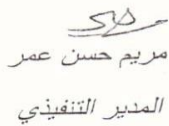 مريم حسن عمر
المدير التنفيذي